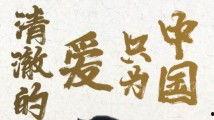 清澈的
爱
只为
中国